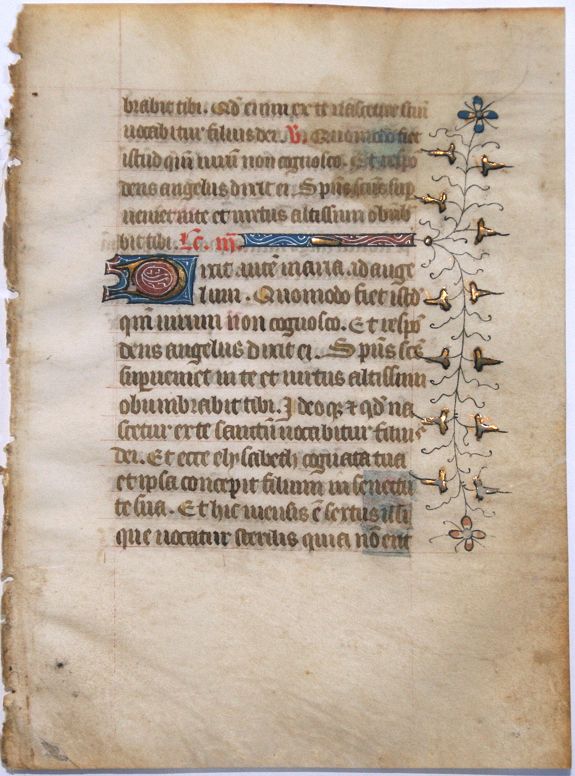 brabit tibi. Qd' enim ex te nascetur sanc̄
uocabitur filius dei. V. Quomodo fiet
istud qm̄ uirum non cognosco. Et respō
dens angelus dixit ei. Sp̄us sc̄us sup
ueniet in te et uirtus altissimi obum
bit tibi. Lc. iij.
Dixit autē maria. ad ange
lum. Quomodo fiet istd
qm̄ uirum non cognosco. Et respō
dens angelus dixit ei. Sp̄us sc̄s
superueniet in te et uirtus altissimi
obumbrabit tibi. Ideoq; ⁊ qd' na
scetur ex te sanctū uocabitur filius
dei. Et ecce elysabeth cognata tua
et ipsa concepit filium in senectu
te sua. Et hic mensis ē sextus illi
que uocatur sterilis quia nō erit